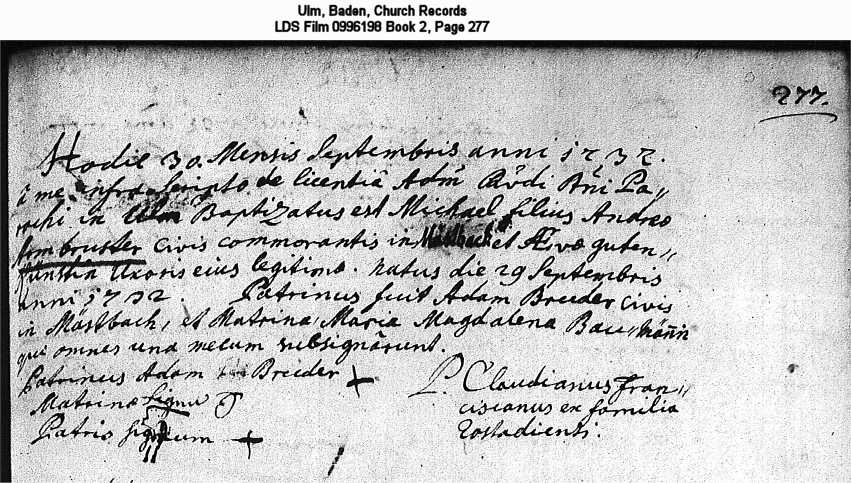 Ulm, Baden, Church Records
LDS Film 0996198 Book 2, Page 277
277.
Hodie 30. Mensis Septembris anni 1732.
à me infra Scripto de licentiâ Adm Rvdi Dni Pa„
rochi in Ulm Baptizatus est Michael filius Andreo
Armbruster civis commorantis in Mösbach et Ævæ guten„
künstin Uxoris eius legitimo. natus die 29 Septembris
anni 1732. Patrinus fuit Adam Breider civis
in Mösbach, et Matrina, Maria Magdalena Bau„männin
qui omnes una mecum subsignârunt.
Patrinus Adam Breider +
Matrinæ Signu
Patris signum +
P. Claudianus Fran„
ciscanus ex familia